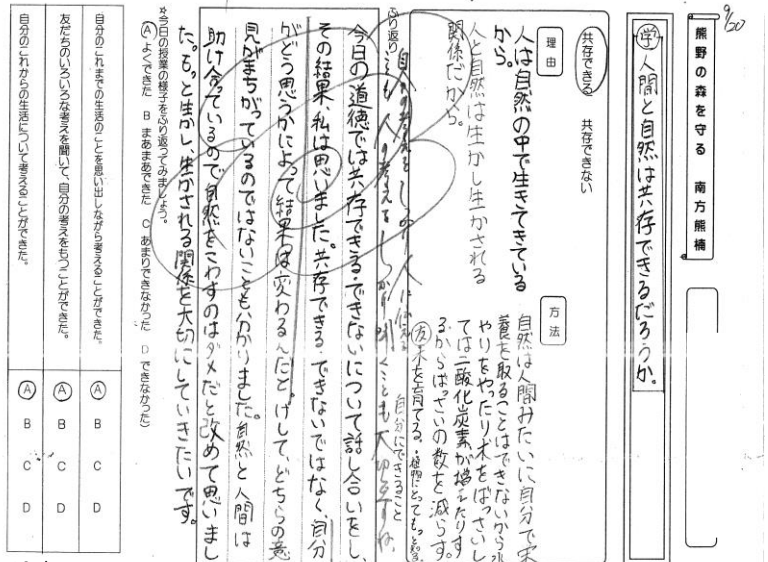 9/20
熊野の森を守る　南方熊楠
学 人間と自然は共存できるだろうか。
共存できる　共存できない
理由
人は自然の中で生きてきている
から。
人と自然は生かし生かされる
関係だから。
方法
自然は人間みたいに自分で栄
養を取ることはできないから水
やりをやったり木をばっさいし
ては二酸化炭素が増えたりす
るからばっさいの数を減らす。
友 木を育てる。
自分にできること
ふり返り
今日の道徳では共存できる・できないについて話し合いをし、
その結果、私は思いました。共存できる・できないではなく、自分
がどう思うかによって結果は変わるんだと。けして、どちらの意
見がまちがっているのではないことも分かりました。自然と人間は
助け合っているので自然をこわすのはダメだと改めて思いまし
た。もっと生かし、生かされる関係を大切にしていきたいです。
☆今日の授業の様子をふり返ってみましょう。
A よくできた　B まあまあできた　C あまりできなかった　D できなかった
自分のこれまでの生活のことを思い出しながら考えることができた。　A　B　C　D
友だちのいろいろな考えを聞いて、自分の考えをもつことができた。　A　B　C　D
自分のこれからの生活について考えることができた。　A　B　C　D